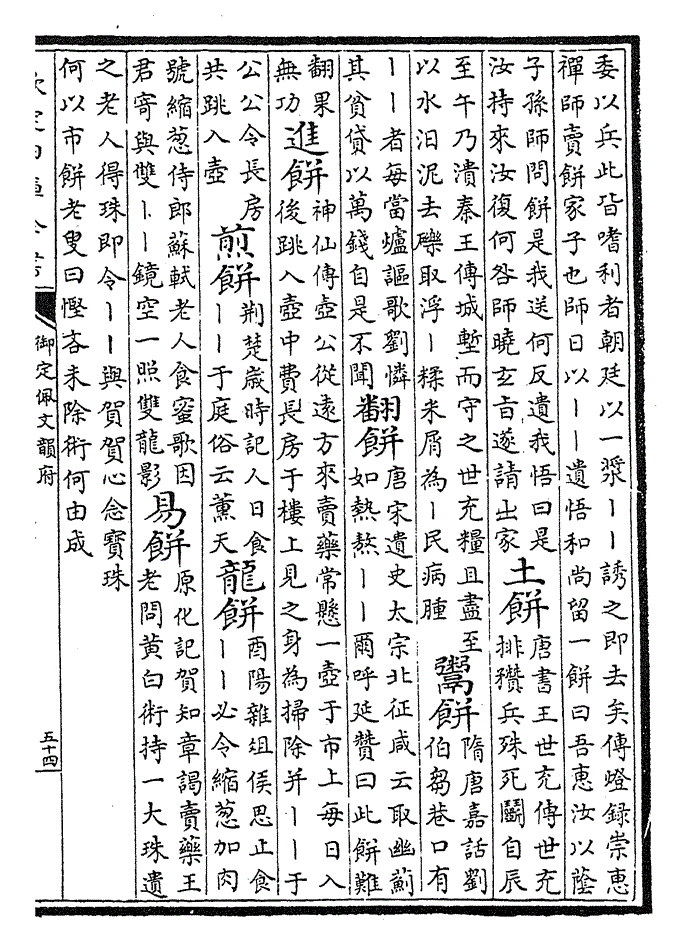 委以兵此皆嗜利者朝廷以一漿丨丨誘之即去矣傳燈錄崇惠
禪師賣餅家子也師日以丨丨遺悟和尚留一餅曰吾惠汝以蔭
子孫師問餅是我送何反遺我悟曰是
汝持來汝復何咎師曉玄旨遂請出家
土餅
唐書王世充傳世充
排穳兵殊死鬬自辰
至午乃潰秦王傳城塹而守之世充糧且盡至
以水汨泥去礫取浮丨糅米屑為丨民病腫
鬻餅
隋唐嘉話劉
伯芻巷口有
丨丨者每當爐謳歌劉憐
其貧貸以萬錢自是不聞
翻餅
唐宋遺史太宗北征咸云取幽薊
如熱熬丨丨爾呼延贊曰此餅難
翻果
無功
進餅
神仙傳壺公從遠方來賣藥常懸一壺于市上每日入
後跳入壺中費長房于樓上見之身為掃除并丨丨于
公公令長房
共跳入壺
煎餅
荆楚歲時記人日食
丨丨于庭俗云薰天
龍餅
酉陽雜俎侯思止食
丨丨必令縮葱加肉
號縮葱侍郎蘇軾老人食蜜歌因
君寄與雙丨丨鏡空一照雙龍影
易餅
原化記賀知章謁賣藥王
老問黄白術持一大珠遺
之老人得珠即令丨丨與賀賀心念寶珠
何以市餅老叟曰慳吝未除術何由成
欽定四庫全書
御定佩文韻府
五十四